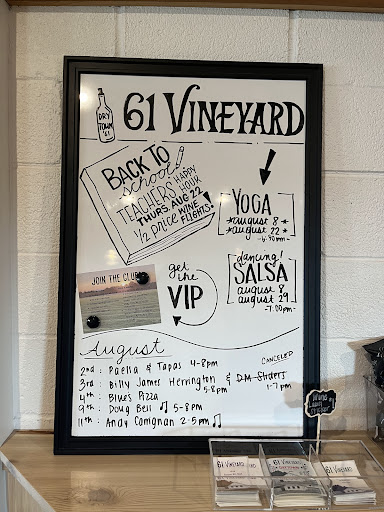 DRY
TOWN
'61
61 VINEYARD
BACK TO
school
TEACHERS
HAPPY
HOUR
THURS. AUG 22
1/2 price WINE
FLIGHTS!
YOGA
*august 8*
*august 22*
-6:30pm-
dancing!
SALSA
august 8
august 29
-7:00pm-
JOIN THE CLUB
get
the
VIP
August
2nd : Paella & Tapas 4-8pm
CANCELED
3rd : Billy James Herrington & D.M. Sliders
5-8pm
1-7pm
4th : Blues Pizza
9th : Doug Bell 5-8pm
11th : Andy Comignan 2-5pm
61 VINEYARD
61 VINEYARD
61 VINEYARD